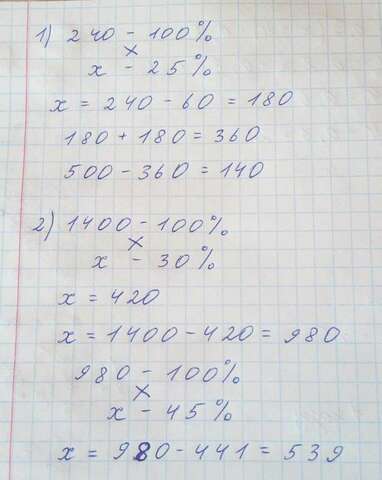 1) 240 - 100%
×
x - 25%
x = 240 - 60 = 180
180 + 180 = 360
500 - 360 = 140
2) 1400 - 100%
×
x - 30%
x = 420
x = 1400 - 420 = 980
980 - 100%
×
x - 45%
x = 980 - 441 = 539